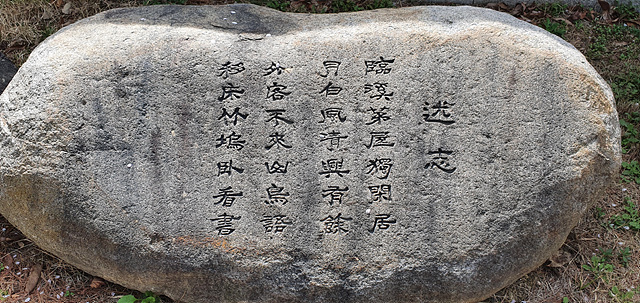 述志
臨溪茅屋獨閑居
月白風清興有餘
外客不來山鳥語
移床竹塢臥看書